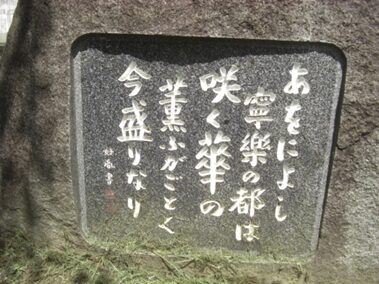 あをによし
寧樂の都は
咲く華の
薫ふがごとく
今盛りなり